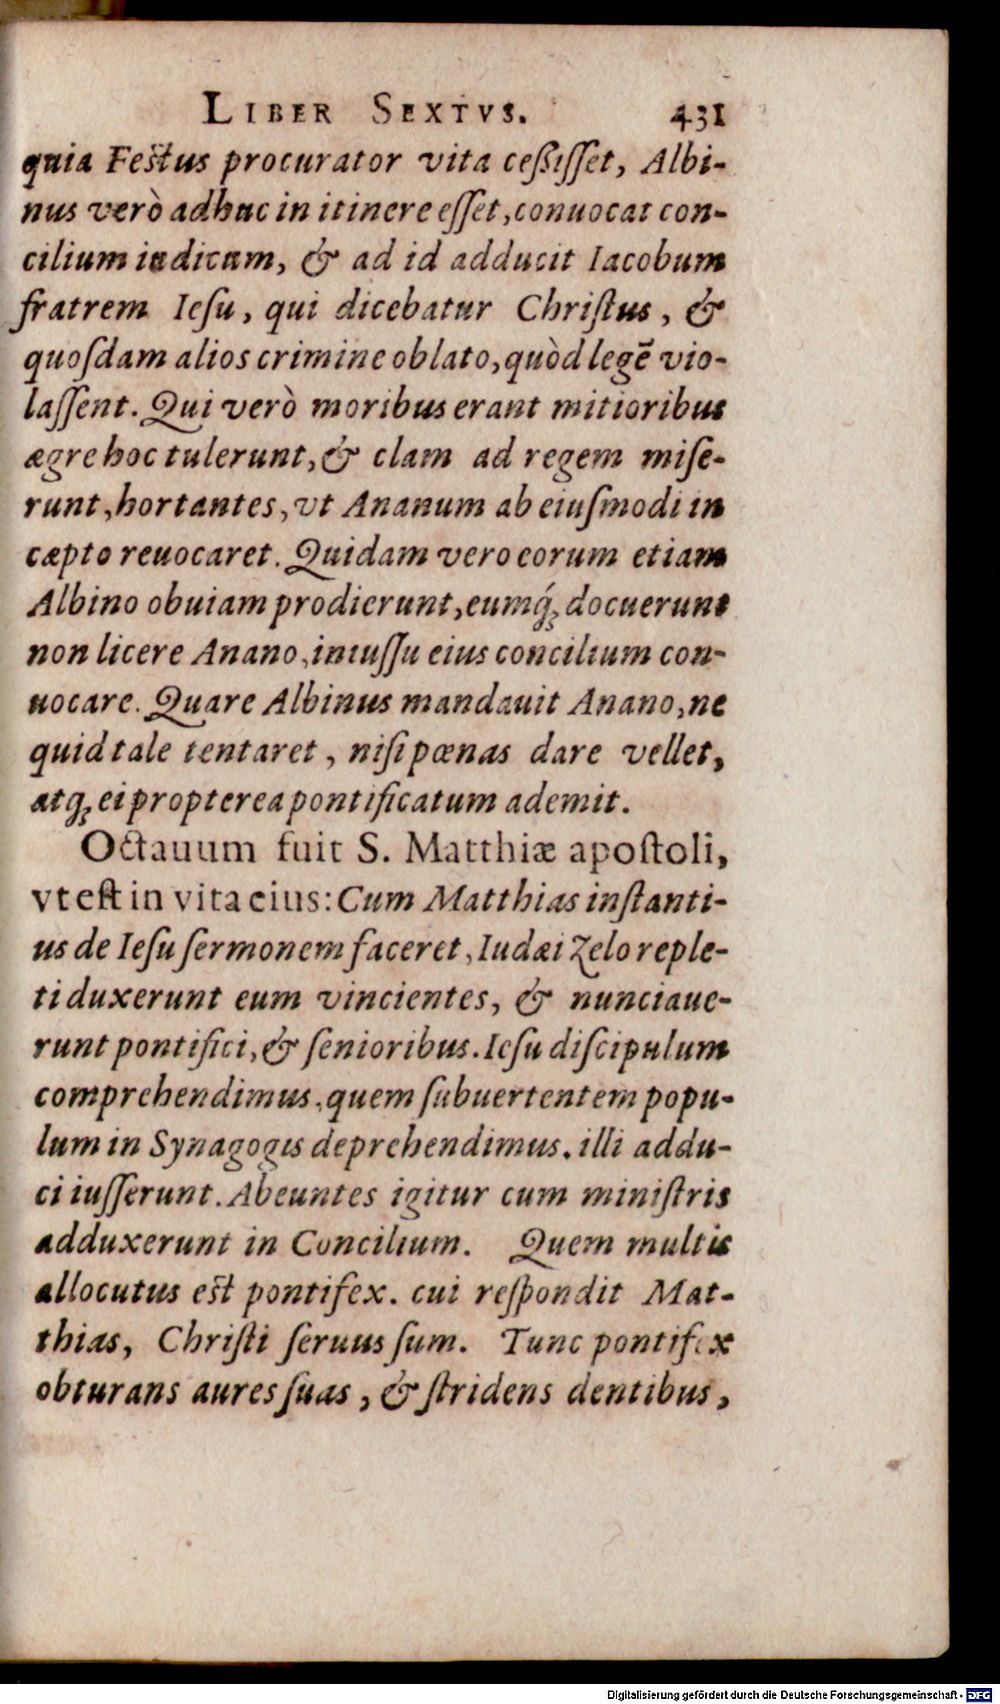 LIBER SEXTVS. 431
quia Festus procurator vita ceßisſet, Albi-
nus verò adhuc in itinere eſſet, conuocat con-
cilium iudicum, & ad id adducit Iacobum
fratrem Ieſu, qui dicebatur Chriſtus, &
quoſdam alios crimine oblato, quòd legē vio-
laſſent. Qui verò moribus erant mitioribus
ægre hoc tulerunt, & clam ad regem miſe-
runt, hortantes, vt Ananum ab eiuſmodi in
cæpto reuocaret. Quidam vero eorum etiam
Albino obuiam prodierunt, eumq́; docuerunt
non licere Anano, iniuſſu eius concilium con-
uocare. Quare Albinus mandauit Anano, ne
quid tale tentaret, niſi pœnas dare vellet,
atq; ei propterea pontificatum ademit.
Octauum fuit S. Matthiæ apoſtoli,
vt eſt in vita eius: Cum Matthias inſtanti-
us de Ieſu ſermonem faceret, Iudæi Zelo reple-
ti duxerunt eum vincientes, & nunciaue-
runt pontifici, & ſenioribus. Ieſu diſcipulum
comprehendimus, quem ſubuertentem popu-
lum in Synagogis deprehendimus. illi addu-
ci iuſſerunt. Abeuntes igitur cum miniſtris
adduxerunt in Concilium. Quem multis
allocutus est pontifex. cui reſpondit Mat-
thias, Chriſti ſeruus ſum. Tunc pontifex
obturans aures ſuas, & ſtridens dentibus,
Digitalisierung gefördert durch die Deutsche Forschungsgemeinschaft - DFG